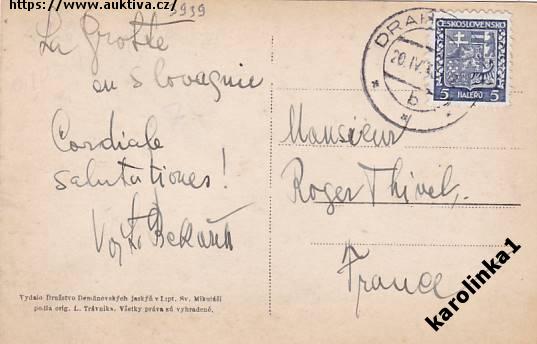 https://www.auktiva.cz/
3939
La Grotte
en Slovaquie
Cordiale
salutationes!
DRAH
20.IV.3
b
ČESKOSLOVENSKO
5 HALÉŘŮ 5
Monsieur
Roger Thivel,
France
Vydalo Družstvo Demänovských jaskýň v Lipt. Sv. Mikuláši
podľa orig. L. Trávnika. Všetky práva sú vyhradené.
karolinka1